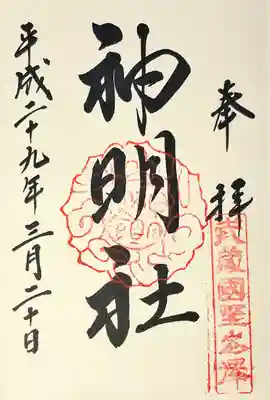 奉拝
武蔵國埜老澤
神明社
平成二十九年三月二十日